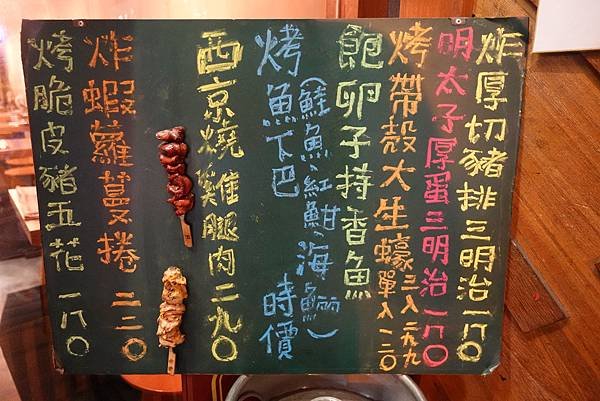 炸厚切豬排三明治一八〇
明太子厚蛋三明治一八〇
烤帶殼大生蠔三入二九九
單入一二〇
飽卵子持香魚
烤魚下巴
(鮭魚、紅魽、海鱺)
時價
西京燒雞腿肉二九〇
炸蝦蘿蔓捲二二〇
烤脆皮豬五花一八〇